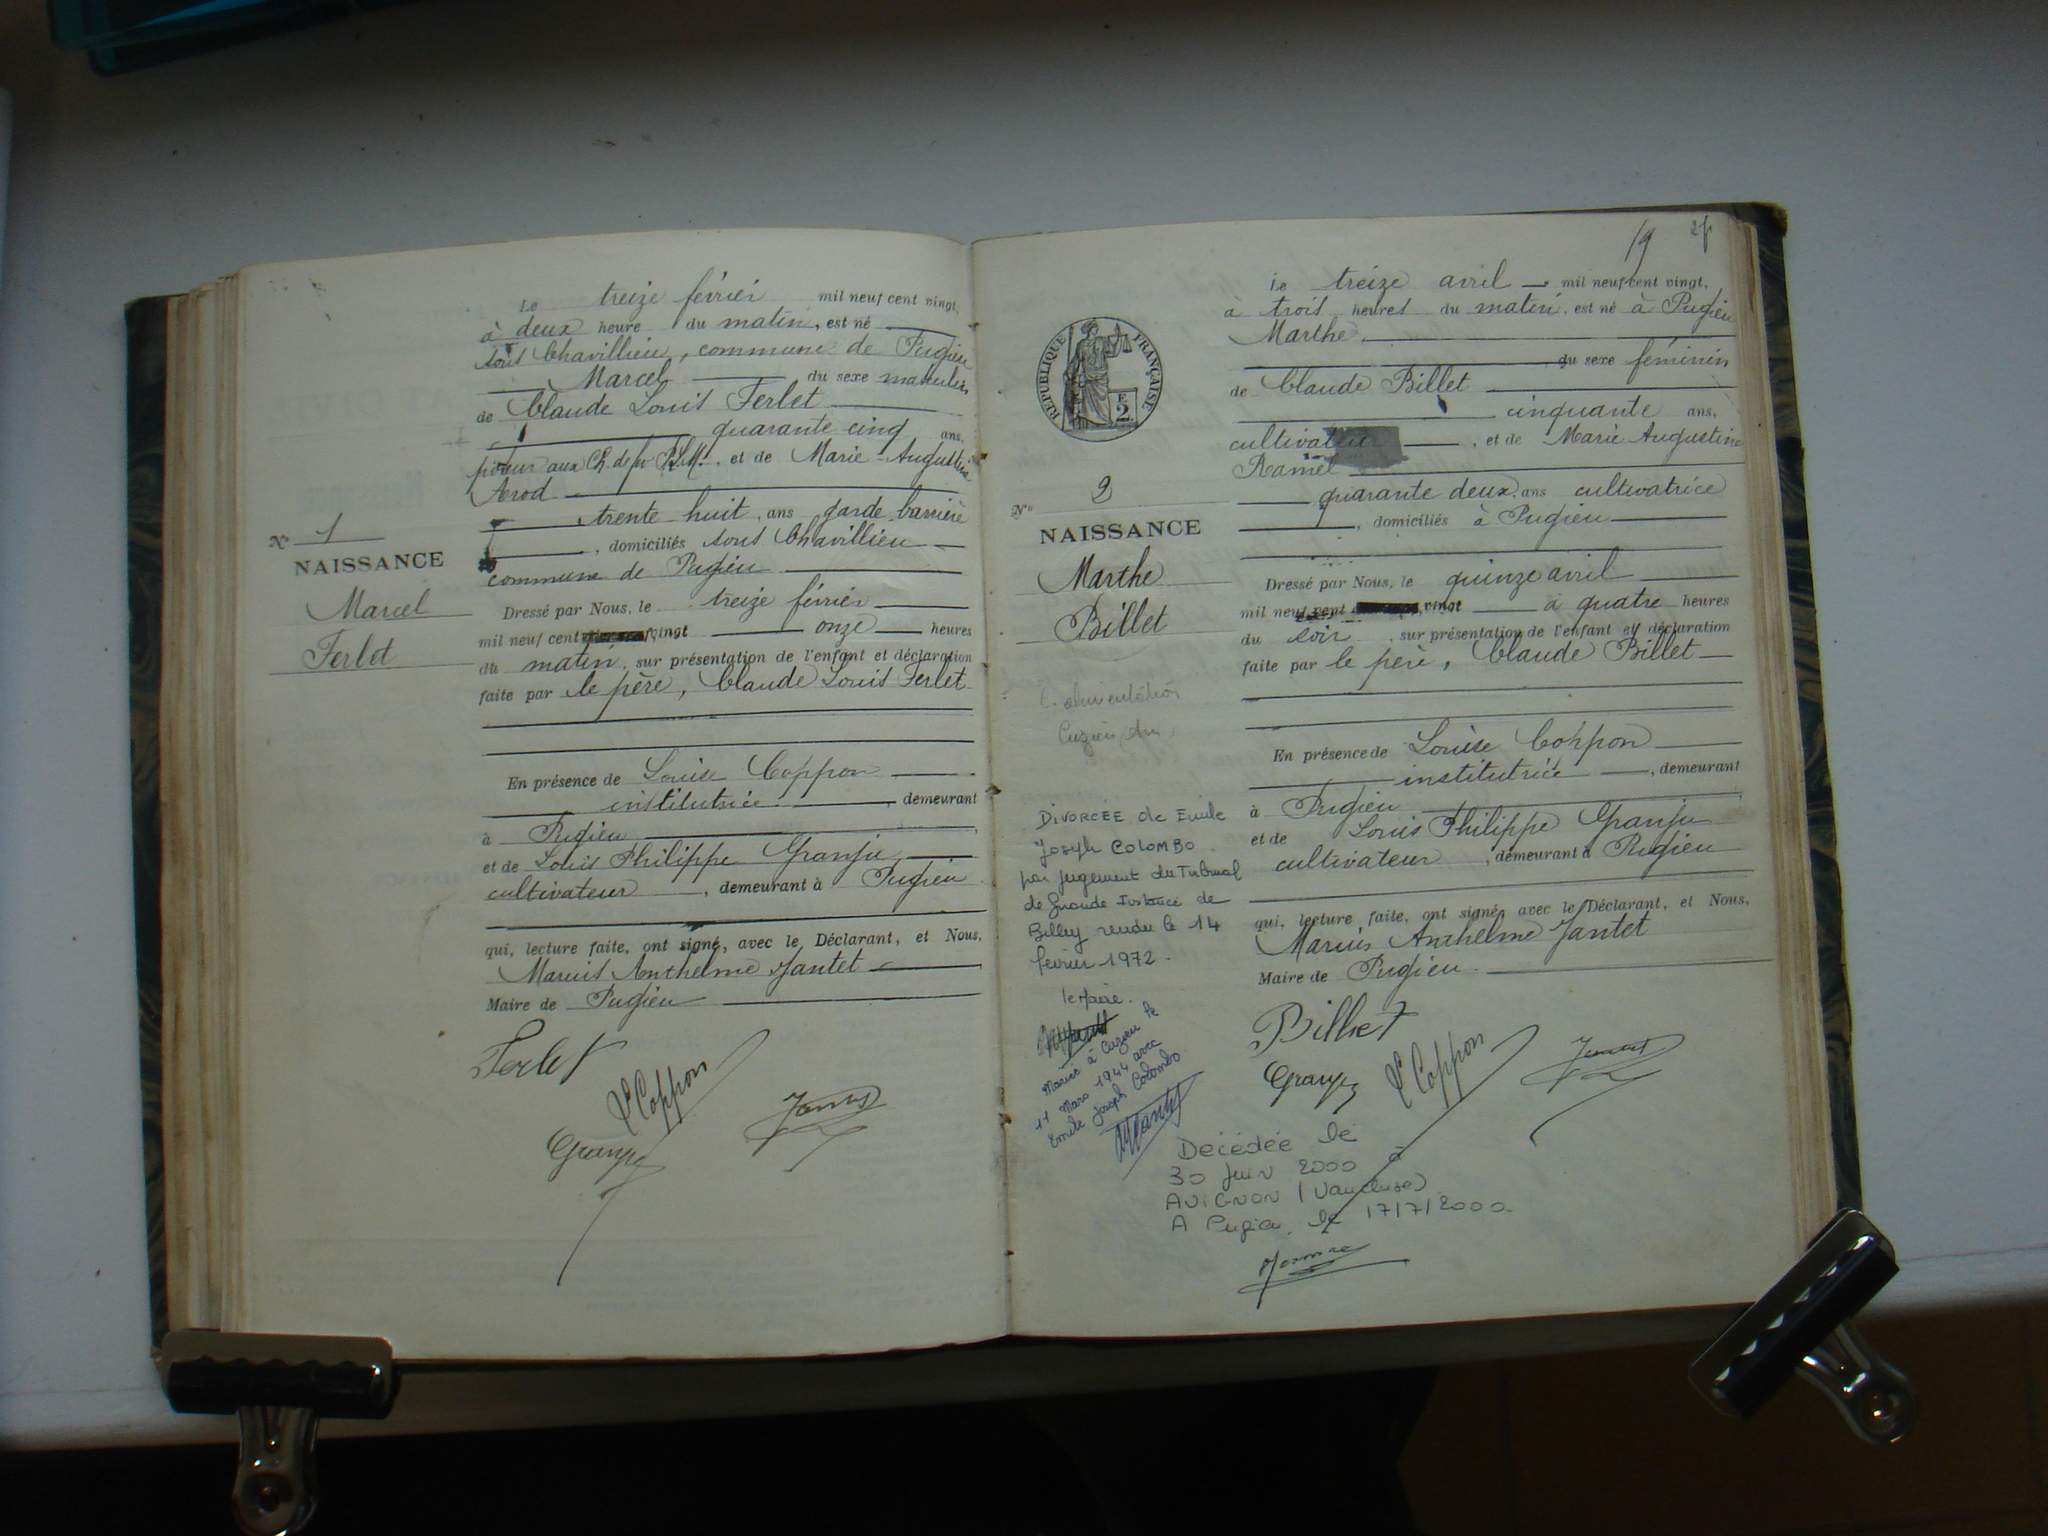 Le treize février mil neuf cent vingt,
à deux heure du matin, est né
sous Chavillieu, commune de Pugieu
Marcel du sexe masculin
de Claude Louis Ferlet
quarante cinq ans,
poseur aux Ch. de fer P.L.M., et de Marie-Augustine
Aerod
trente huit, ans garde barrière
, domiciliés sous Chavillieu
commune de Pugieu
Nº 1
NAISSANCE
Marcel
Ferlet
Dressé par Nous, le treize février
mil neuf cent vingt onze heures
du matin, sur présentation de l'enfant et déclaration
faite par le père, Claude Louis Ferlet
En présence de Louise Coppon
institutrice, demeurant
à Pugieu
et de Louis Philippe Granju
cultivateur, demeurant à Pugieu
qui, lecture faite, ont signé, avec le Déclarant, et Nous,
Marius Anthelme Jantet
Maire de Pugieu
Ferlet
L Coppon
Granju
Jantet
19
Le treize avril mil neuf cent vingt,
à trois heures du matin, est né à Pugieu
Marthe
du sexe féminin
de Claude Billet
cinquante ans,
cultivateur, et de Marie Augustine
Ramel
quarante deux, ans cultivatrice
, domiciliés à Pugieu
RÉPUBLIQUE FRANÇAISE
F.
2
Nº 2
NAISSANCE
Marthe
Billet
Dressé par Nous, le quinze avril
mil neuf cent vingt à quatre heures
du soir, sur présentation de l'enfant et déclaration
faite par le père, Claude Billet
En présence de Louise Coppon
institutrice, demeurant
à Pugieu
et de Louis Philippe Granju
cultivateur, demeurant à Pugieu
qui, lecture faite, ont signé, avec le Déclarant, et Nous,
Marius Anthelme Jantet
Maire de Pugieu.
Billet
Granju
L Coppon
Jantet
Divorcée de Emile
Joseph COLOMBO
par jugement du Tribunal
de Grande Instance de
Belley rendu le 14
février 1972.
le Maire.
Marié à Cuzieu le
Mars 1944 avec
Emile Joseph Colombo
Décédée le
30 Juin 2000 à
AVIGNON (Vaucluse)
A Pugieu, le 17/7/2000.